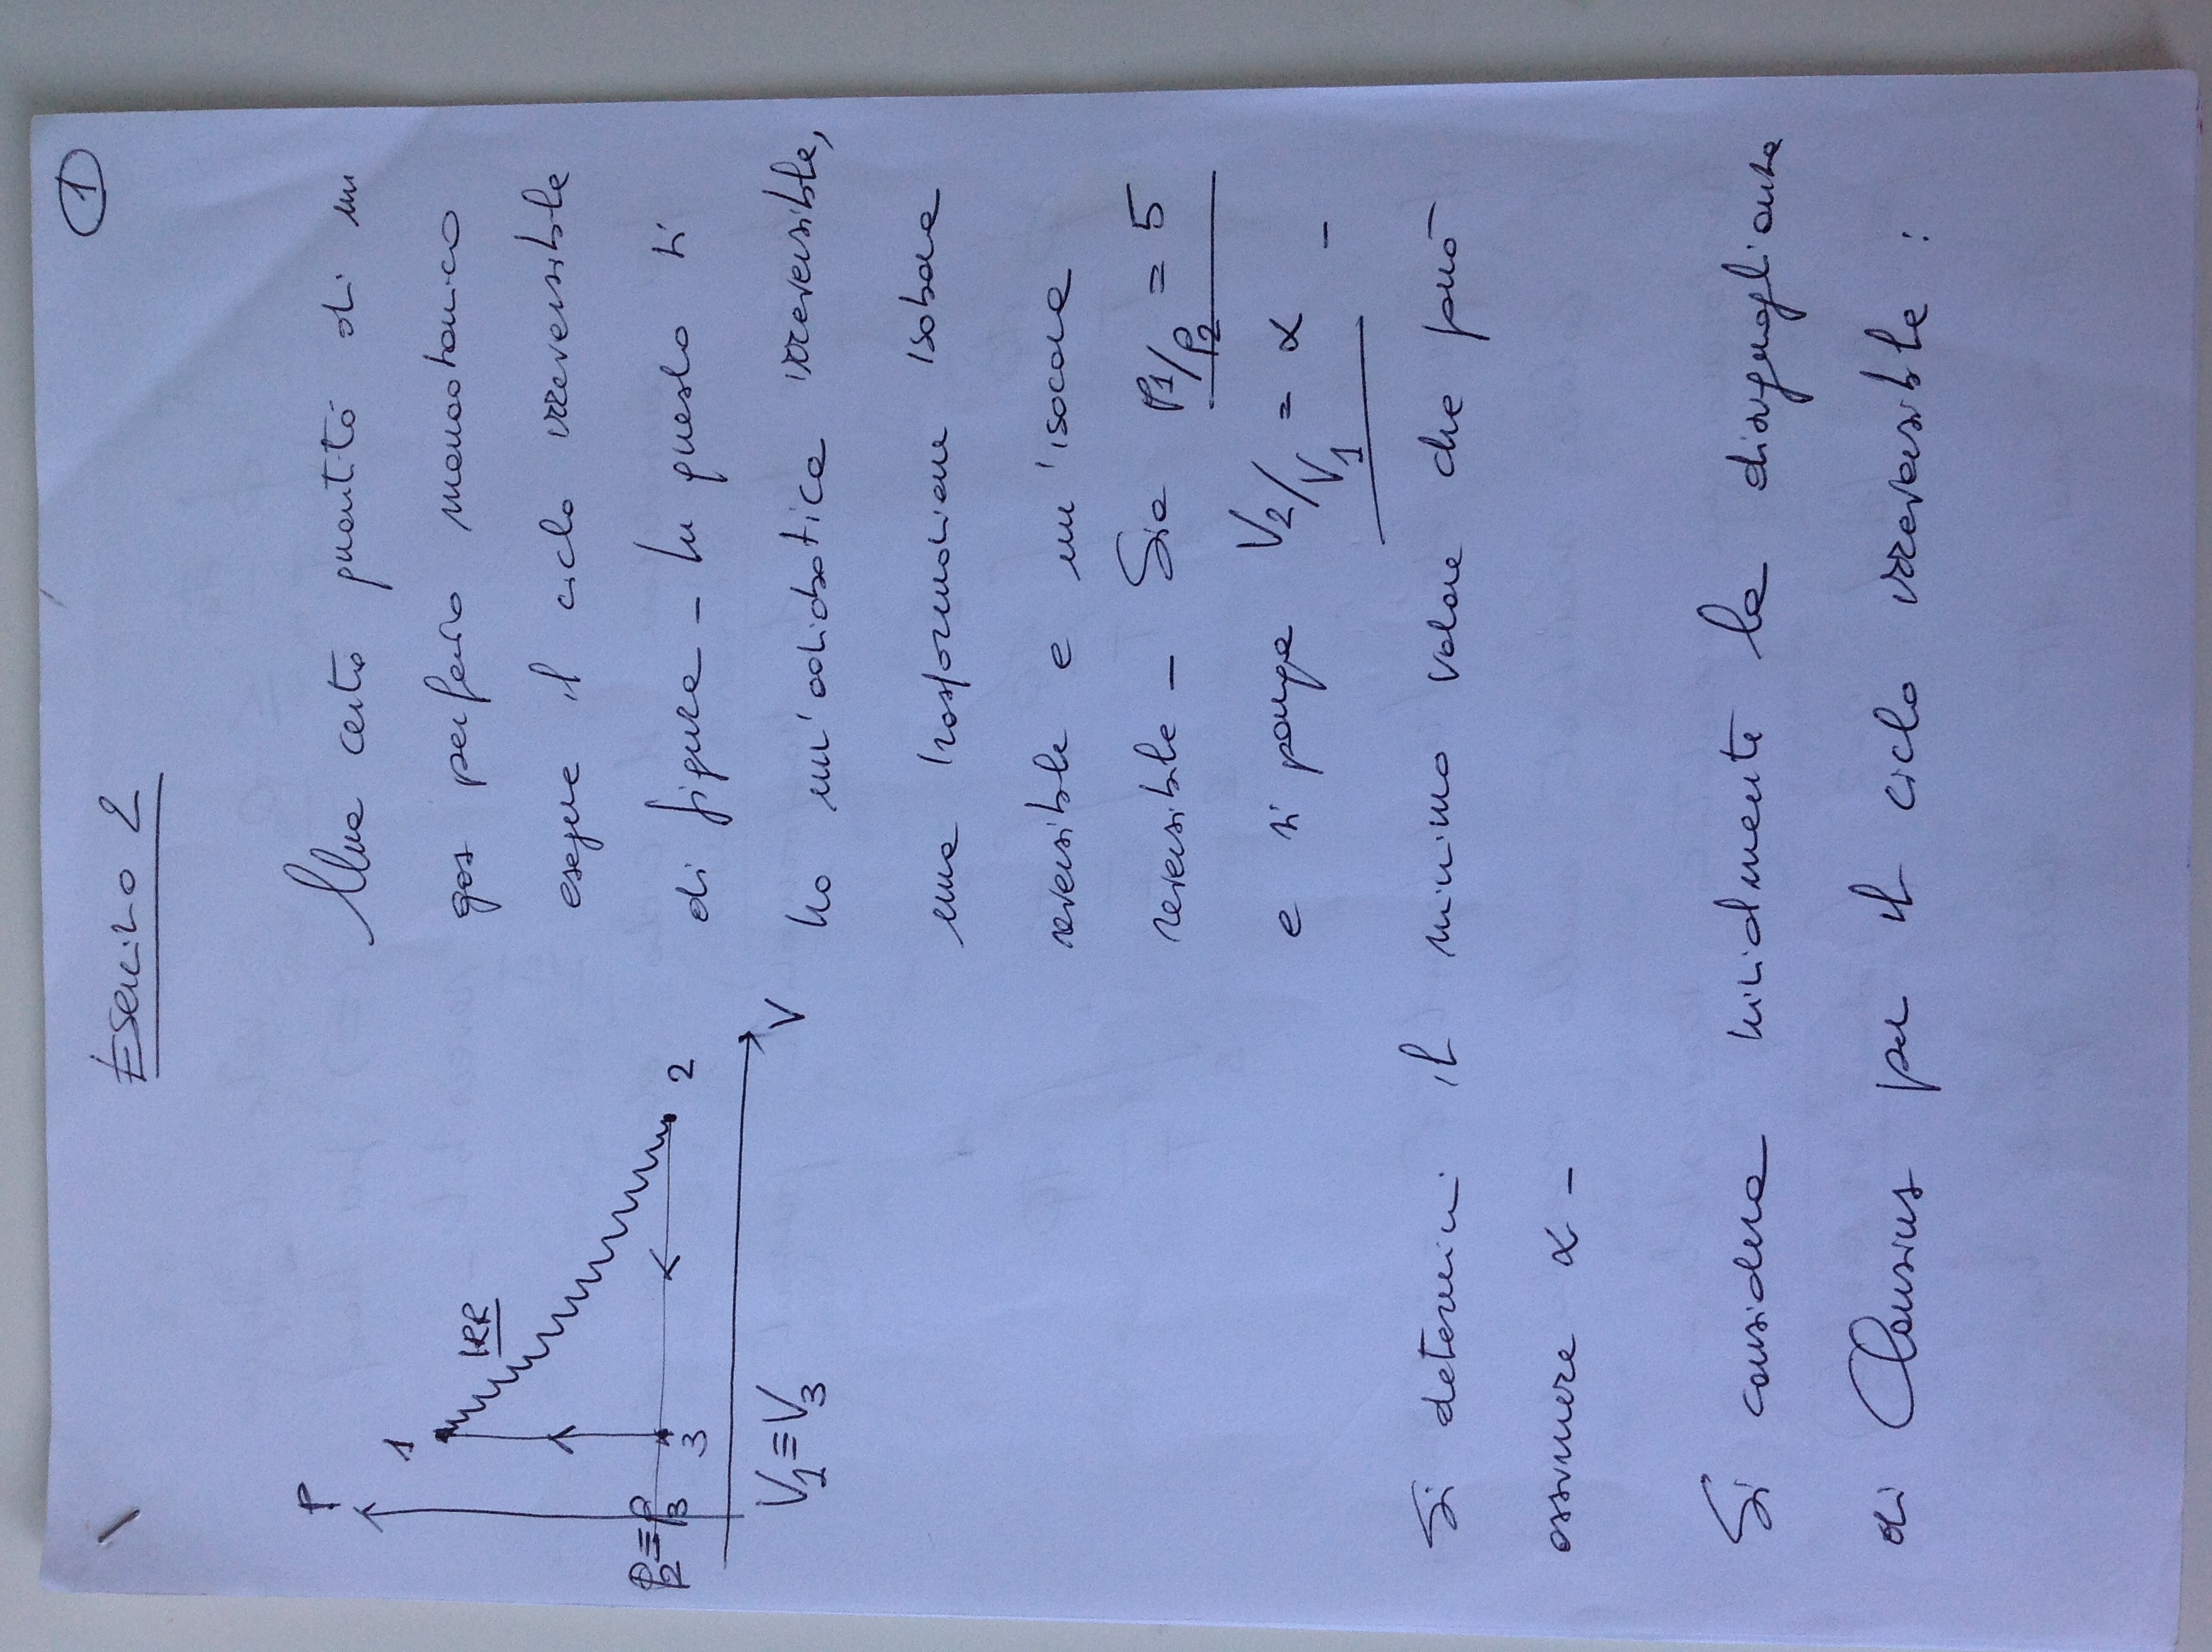 1
Esercizio 2
P
1
IRR
p2≡p3
3
2
V1≡V3
V
Una certa quantità di un
gas perfetto monoatomico
esegue il ciclo irreversibile
di figura - In questo si
ha un'adiabatica irreversibile,
una trasformazione isobara
reversibile e un'isocora
reversibile - Sia p1/p2 = 5
e si ponga V2/V1 = α -
Si determini il minimo valore che può
assumere α -
Si considera inizialmente la disuguaglianza
di Clausius per il ciclo irreversibile :